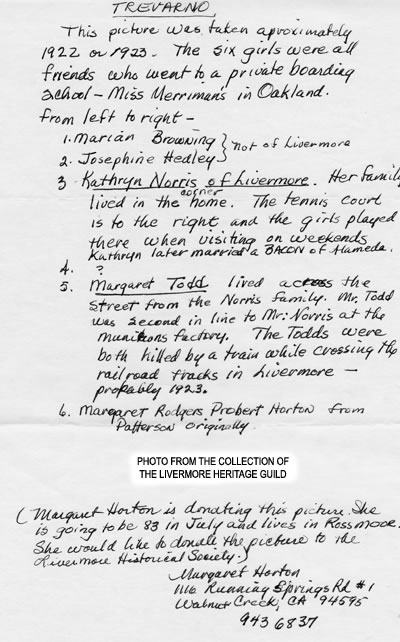 TREVARNO
This picture was taken aproximately
1922 or 1923. The six girls were all
friends who went to a private boarding
school - Miss Merriman's in Oakland.
From left to right -
1. Marian Browning } not of Livermore
2. Josephine Hedley
3 Kathryn Norris of Livermore. Her family
lived in the corner home. The tennis court
is to the right and the girls played
there when visiting on weekends
Kathryn later married a BACON of Alameda.
4. ?
5. Margaret Todd lived across the
street from the Norris family. Mr. Todd
was second in line to Mr. Norris at the
munitions factory. The Todds were
both killed by a train while crossing the
railroad tracks in Livermore -
probably 1923.
6. Margaret Rodgers Probert Horton from
Patterson originally.
PHOTO FROM THE COLLECTION OF
THE LIVERMORE HERITAGE GUILD
(Margaret Horton is donating this picture. She
is going to be 83 in July and lives in Rossmoor.
She would like to donate the picture to the
Livermore Historical Society.)
Margaret Horton
1116 Running Springs Rd #1
Walnut Creek, CA 94595
943 6837